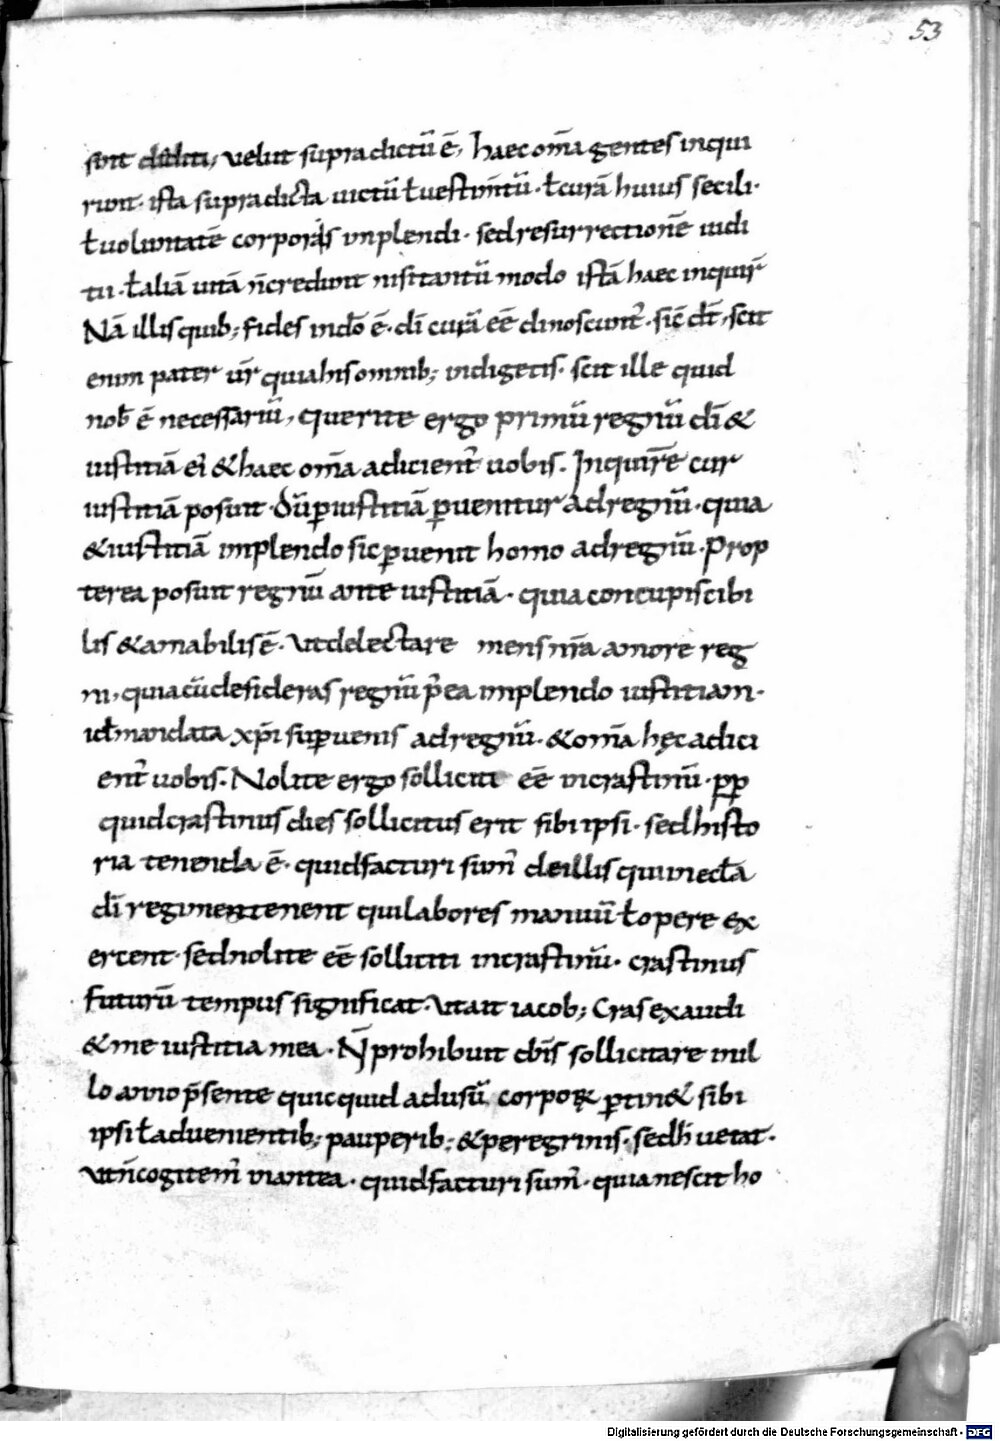 53
sunt dediti; velut supra dictū ē, haec om̄a gentes inqui
runt· ista supra dicta uictū ł uestim̄tū· ł curā huius seculi·
ł uoluntatē corporis implendi· sed resurrectionē iudi
tii· ł aliā uitā n̄ credunt nisi tantū modo istā haec inquir̄
Nā illis quib; fides indō ē· dī curā eē dinoscunt̄· sic̄ dt̄, scit
enim pater ur̄ quia his omnib; indigetis· scit ille quid
nob̄ ē necessariū, Querite ergo primū regnū dī &
iustitiā ei' & haec om̄a adicient̄ uobis. Inquirere cur
iustitiā posuit· dū p̄ iustitiā p̄uenitur ad regnū· quia
& iustitiā implendo sic p̄uenit homo ad regnū· Prop
terea posuit regnū ante iustitiā· quia concupiscibi
lis & amabilis ē· ut delectare mens nr̄a amore reg
ni, quia cū desideras regnū p̄ ea implendo iustitiam·
id ÷ mandata xp̄i sup̄uenis ad regnū· & om̄a hęc adici
ent̄ uobis. Nolite ergo solliciti eē in crastinū· pp̄
quid crastinus dies sollicitus erit sibi ipsi· sed histo
ria tenenda ē· quid facturi sum' de illis qui in eccła
dī regimen tenent qui labores manuū ł opere ex
ercent· sed nolite eē solliciti in crastinū· crastinus
futurū tempus significat· ut ait iacob; Cras exaudi
& me iustitia mea· N̄ prohibuit dn̄s sollicitare in il
lo anno p̄sente quicquid ad usū corporꝝ p̄tin& sibi
ipsi ł aduenientib; pauperib; & peregrinis· sed h̄ uetat·
ut n̄ cogitem' in antea· quid facturi sum'· quia nescit ho
Digitalisierung gefördert durch die Deutsche Forschungsgemeinschaft - DFG